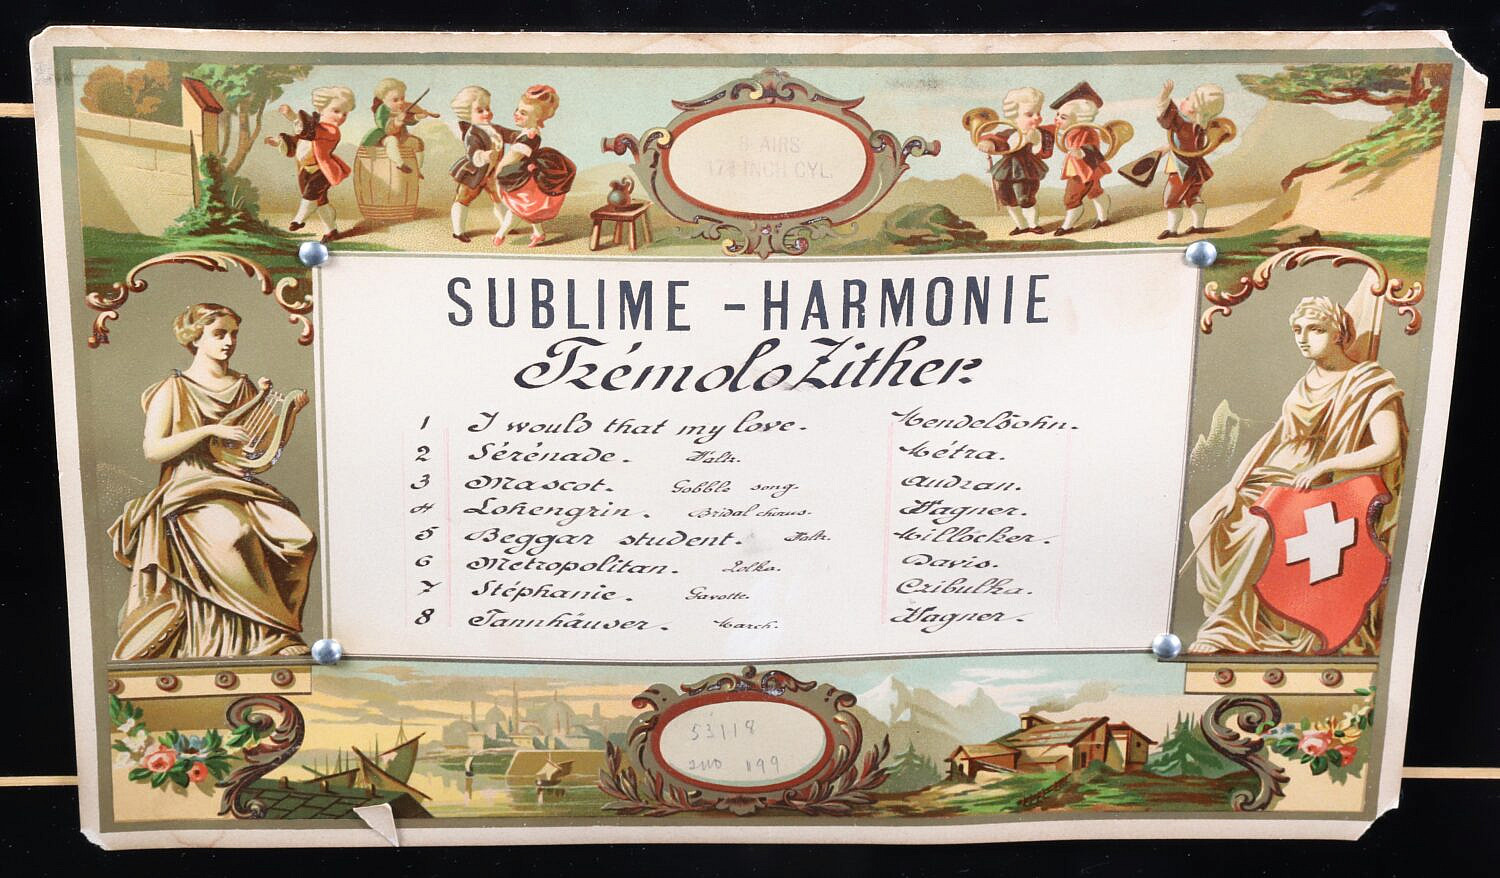 8 AIRS
17¾ INCH CYL.
SUBLIME - HARMONIE
Trémolo Zither.
1 I would that my love. Mendelsohn.
2 Sérénade. Walz. Métra.
3 Mascot. Gobble song. Audran.
4 Lohengrin. Bridal chorus. Wagner.
5 Beggar student. Walz. Millöcker.
6 Metropolitan. Polka. Davis.
7 Stéphanie. Gavotte. Czibulka.
8 Tannhäuser. March. Wagner.
53118
199